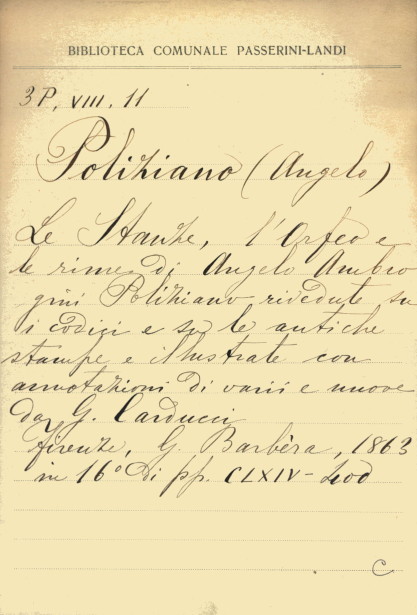 BIBLIOTECA COMUNALE PASSERINI-LANDI
3P. VIII. 11
Poliziano (Angelo)
Le Stanze, l'Orfeo e
le rime di Angelo Ambro
gini Poliziano rivedute su
i codici e su le antiche
stampe e illustrate con
annotazioni di varii e nuove
da G. Carducci
Firenze, G. Barbèra, 1863
in 16° di pp. CLXIV-
C